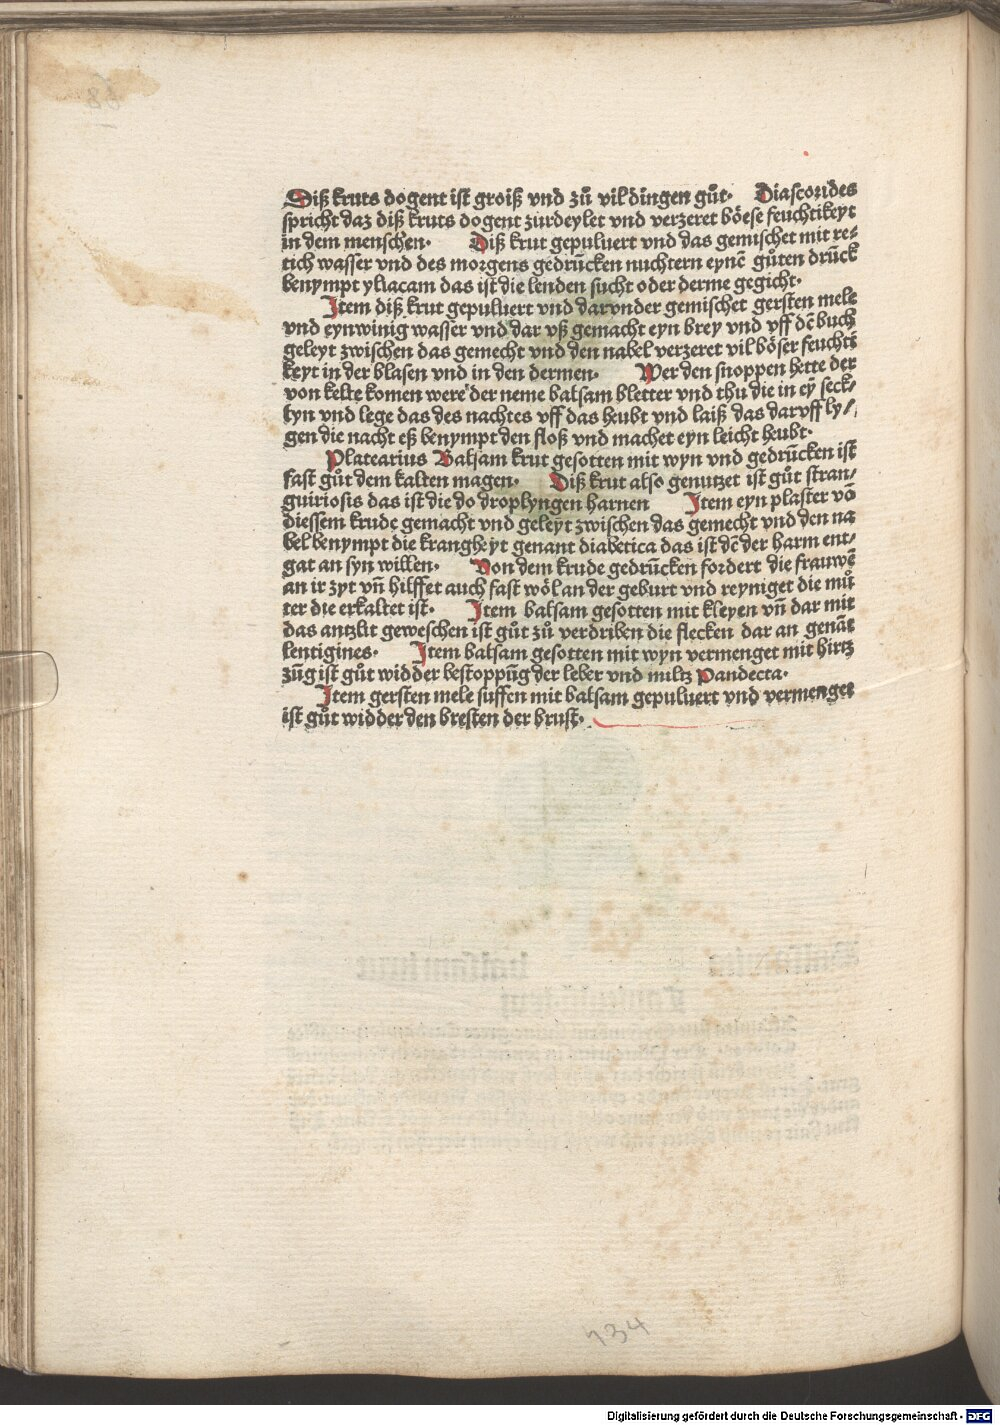 Diß kruts dogent ist groiß vnd zů vil dingen gůt· Diascorides
spricht daz diß kruts dogent zurdeylet vnd verzeret böese feuchtikeyt
in dem menschen· Diß krut gepuluert vnd das gemischet mit re-
tich wasser vnd des morgens gedrūcken nuchtern eynē gůten drūck
benympt yliacam das ist die lenden sucht oder derme gegicht·
Item diß krut gepuluert vnd darvnder gemischet gersten mele
vnd eynwinig wasser vnd dar vß gemacht eyn brey vnd vff dē buch
geleyt zwischen das gemecht vnd den nabel verzeret vil böser feuchti
keyt in der blasen vnd in den dermen· Wer den snoppen hette der
von kelte komen were der neme balsam bletter vnd thu die in eȳ seck-
lyn vnd lege das des nachtes vff das heubt vnd laiß das darvff ly-
gen die nacht eß benympt den floß vnd machet eyn leicht heubt·
Platearius Balsam krut gesotten mit wyn vnd gedrūcken ist
fast gůt dem kalten magen· Diß krut also genutzet ist gůt stran-
guiriosis das ist die do droplyngen harnen Item eyn plaster vō
diessem krude gemacht vnd geleyt zwischen das gemecht vnd den na
bel benympt die krangheyt genant diabetica das ist dē der harm ent-
gat an syn willen· Von dem krude gedrūcken fordert die frauwē
an ir zyt vn̄ hilffet auch fast wöl an der geburt vnd reyniget die mů
ter die erkaltet ist· Item balsam gesotten mit kleyen vn̄ dar mit
das antzlit geweschen ist gůt zů verdriben die flecken dar an genāt
lentigines· Item balsam gesotten mit wyn vermenget mit hirtz
zūg ist gůt widder bestoppūg der leber vnd miltz Pandecta·
Item gersten mele suffen mit balsam gepuluert vnd vermenget
ist gůt widder den bresten der brust·
134
Digitalisierung gefördert durch die Deutsche Forschungsgemeinschaft - DFG